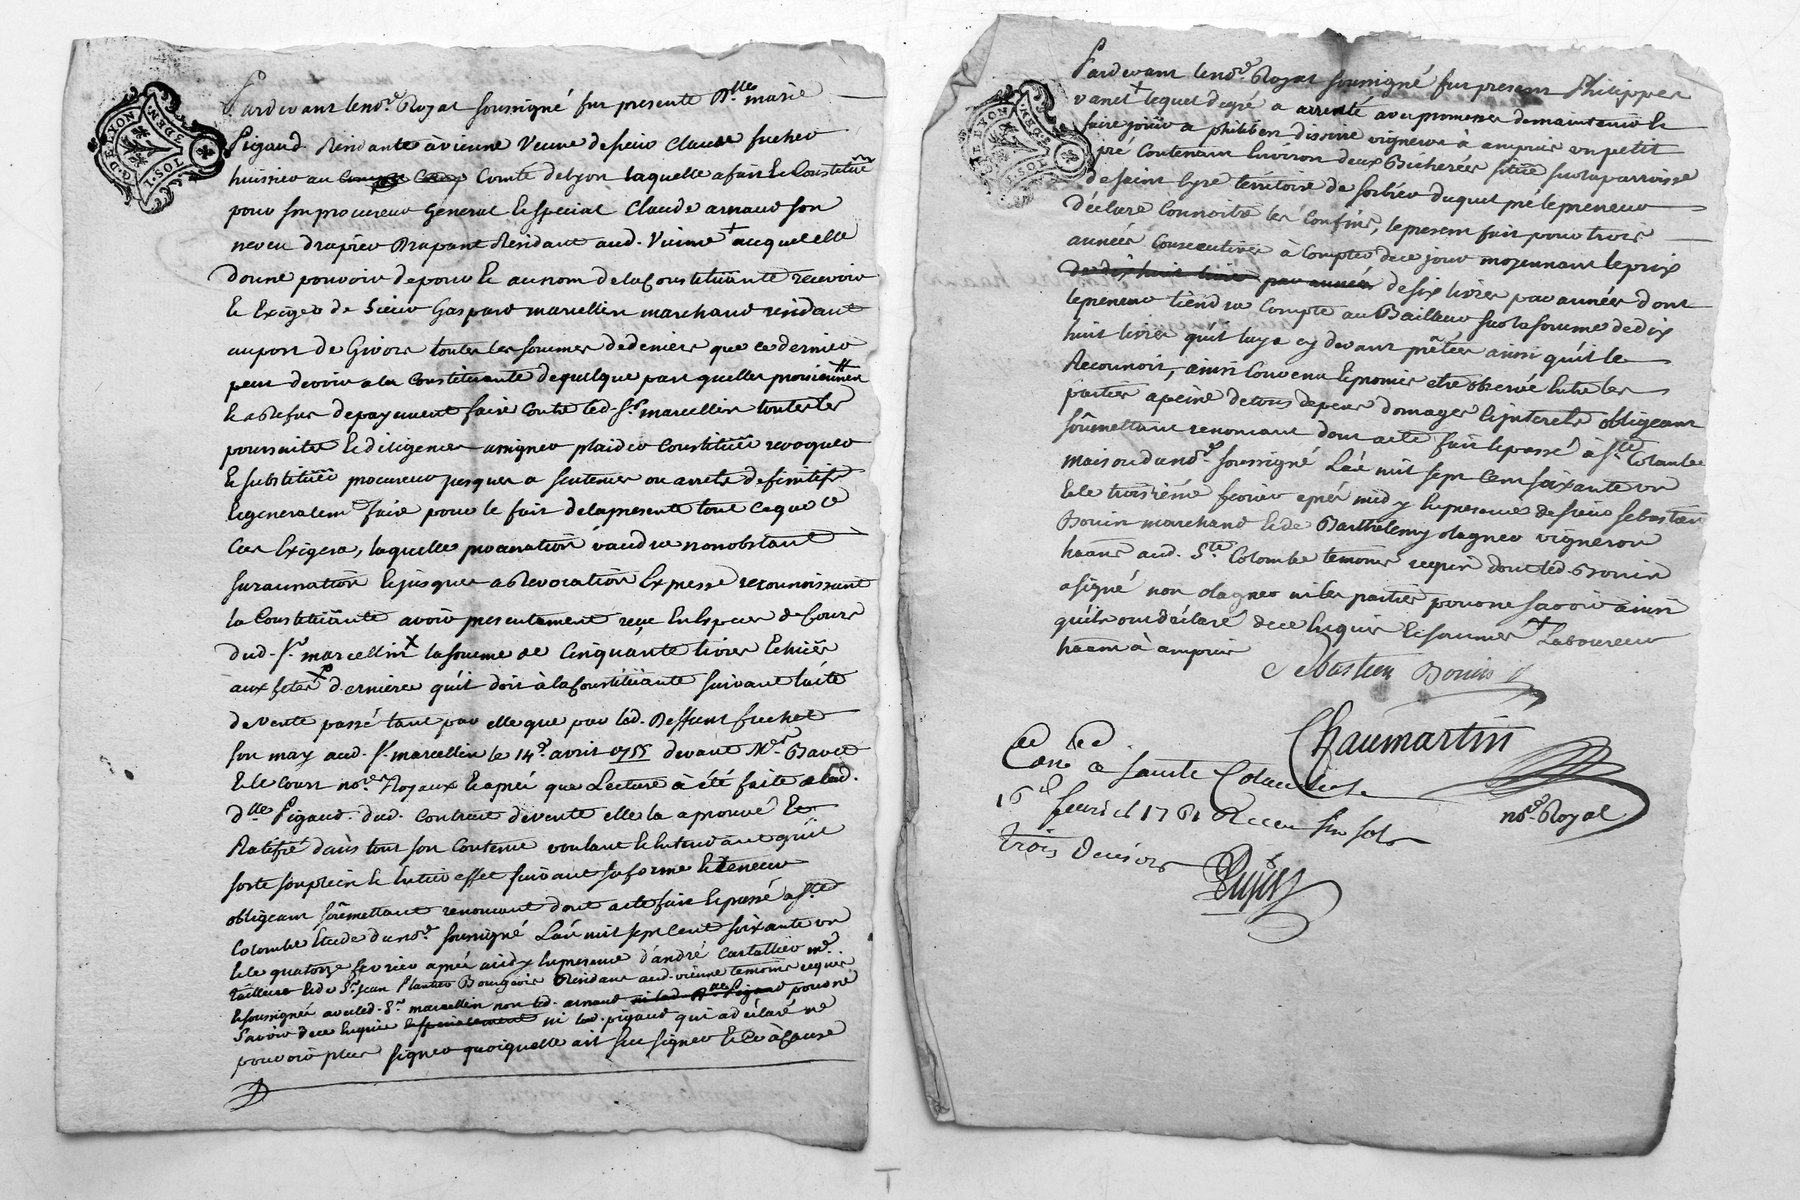 G.D.E LYON
DEN.
SOLS.
Pardevant le no.re Royal soussigné fut presente D.lle marie
Pigaud Residante à vienne Veuve de sieur Claude fuchet
huissier au Comté de lyon laquelle a fait et Constitué
pour son procureur General et special Claude arnaud son
neveu drapier Drapant Residant aud. Vienne + auquel elle
donne pouvoir de pour et au nom de la Constituante recevoir
et Exiger de Sieur Gaspard marcellin marchand residant
au port de Givors toutes les sommes de deniers que ce dernier
peut devoir a la Constituante de quelque part quelles proviennent
et a Refus de payement faire Contre led. S.r marcellin toutes les
poursuites et diligences assigner plaider Constituer revoquer
et substituer procureur jusques a sentences ou arrets definitifs
et generalem.t faire pour le fait de la presente tout ce que le
Cas Exigera, laquelle procuration vaudra nonobstant
surannation et jusques a Revocation Expresse reconnoissant
la Constituante avoir presentement reçu en Especes de Cours
dud. S.r marcellin X la somme de Cinquante livres Echües
aux fetes X dernieres qu'il doit à la Constituante suivant l'acte
de vente passé tant par elle que par led. Deffunt fuchet
son mary aud. S.r marcellin le 14.e avril 1755 devant M.r Bavet
et le Court no.res Royaux et aprés que Lecture à été faite a lad.
d.lle Pigaud dud. Contract de vente elle la aprouvé et
Ratifié dans tout son Contenu voulant et entendant qu'il
sorte son plein et entier effet suivant sa forme et teneur
obligeant soûmettant renonçant dont acte fait et passé a S.te
Colombe Etude du no.re soussigné L'an mil sept cent soixante un
et le quatorze fevrier aprés midy En presence d'andré Castallier m.e
tailleur et de S.r jean Plantier Bourgeois Residant aud. vienne temoins requis
et soussignés avec led. S.r marcellin non led. arnaud ni lad. D.lle Pigaud pour ne
Savoir de ce Enquis et specialement ni lad. pigaud qui a déclaré ne
pouvoir plus signer quoiquelle ait sceu signer et ce à cause
Pardevant le no.re Royal soussigné fut present Philippes
vanel + lequel de gré a arrenté avec promesse de maintenir et
faire jouir a philibert dissoire vigneron à ampuis un petit
pré Contenant Environ deux Bicherées situé sur la parroisse
de saint Cyre territoire de sorbier duquel pré le preneur
declare Connoitre les Confins, le present fait pour trois
années Consecutives à Compter de ce jour moyennant le prix
de dix huit livres par année de six livres par années dont
le preneur tiendra Compte au Bailleur sur la somme de dix
huit livres qu'il luy a cy devant prêtée, ainsi qu'il le
Reconnoit, ainsi Convenu et promis etre observé Entre les
parties a peine de tous depens domages et interets obligeant
soûmettant renonçant dont acte fait et passé à S.te Colombe
maison du no.re soussigné L'an mil sept Cent soixante un
et le troisième fevrier aprés midy En presence de sieur Sebastien
Bonin marchand et de Barthelemy olagner vigneron
haant aud. S.te Colombe temoins requis dont led. Bonin
a signé non olagner ni les parties pour ne savoir ainsi
qu'ils ont déclaré de ce Enquis et sommés + Laboureur
haant à ampuis
Sebastien Bonin
Chaumartin
no.re Royal
Con.e a sainte Colombe le
16 fevrier 1761 Receu six sols
trois deniers